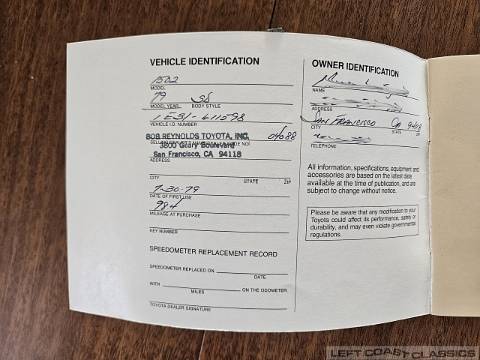 VEHICLE IDENTIFICATION
1502
MODEL
79 Sd
MODEL YEAR BODY STYLE
VEHICLE I.D. NUMBER
BOB REYNOLDS TOYOTA, INC. 04088
3800 Geary Boulevard
San Francisco, CA 94118
ADDRESS
CITY STATE ZIP
7-20-79
DATE OF FIRST USE
984
MILEAGE AT PURCHASE
KEY NUMBER
SPEEDOMETER REPLACEMENT RECORD
SPEEDOMETER REPLACED ON
DATE
WITH ON THE ODOMETER.
MILES
TOYOTA DEALER SIGNATURE
OWNER IDENTIFICATION
NAME
ADDRESS
SAN FRANCISCO Ca
CITY STATE ZIP
TELEPHONE
All information, specifications, equipment and
accessories are based on the latest data
available at the time of publication, and are
subject to change without notice.
Please be aware that any modification to your
Toyota could affect its performance, safety or
durability, and may even violate governmental
regulations.
LEFT COAST CLASSICS